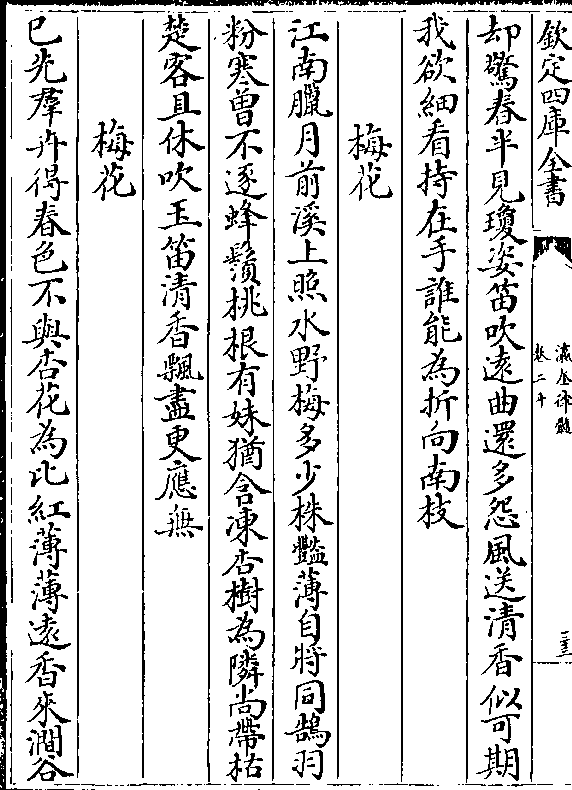 欽定四庫全書
瀛奎律髓
卷二十
三三
却驚春半見瓊姿笛吹遠曲還多怨風送清香似可期
我欲細看持在手誰能為折向南枝
梅花
江南臘月前溪上照水野梅多少株豔薄自將同鵠羽
粉寒曾不逐蜂鬚桃根有妹猶含凍杏樹為隣尚帶枯
楚客且休吹玉笛清香飄盡更應無
梅花
已先羣卉得春色不與杏花為比紅薄薄遠香來澗谷